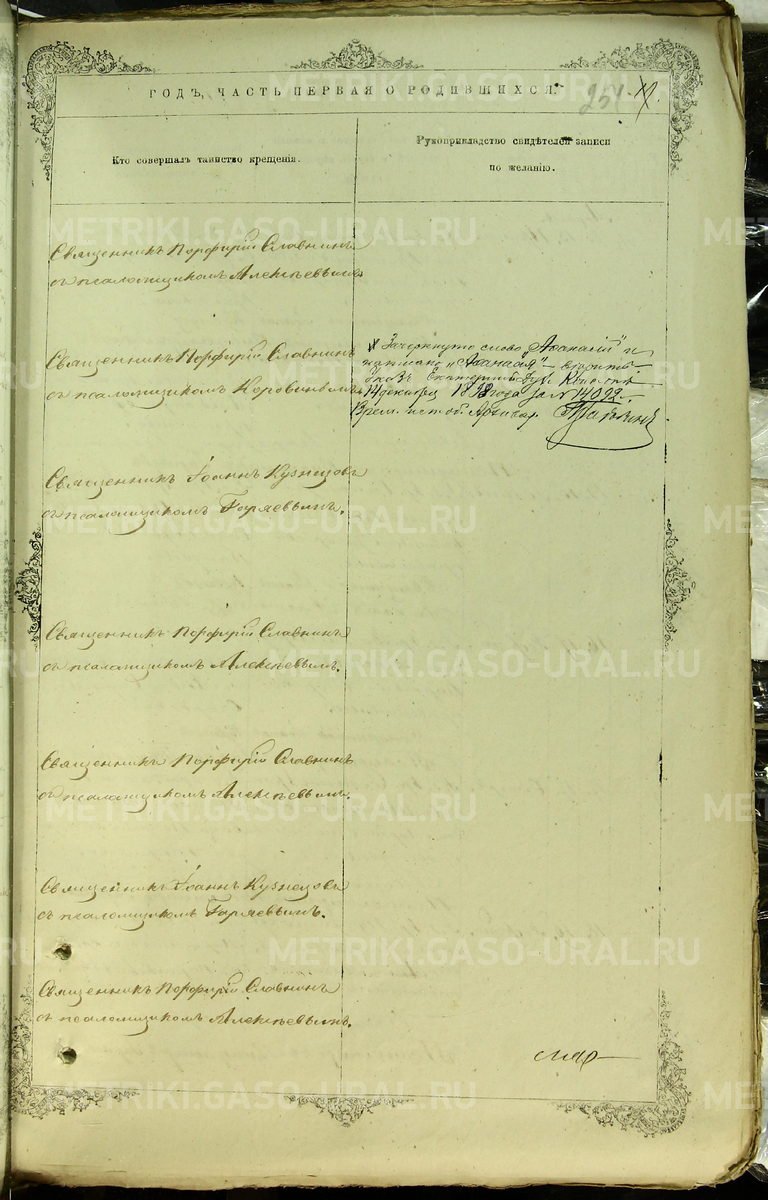 ГОДЪ, ЧАСТЬ ПЕРВАЯ О РОДИВШИХСЯ.
251
Кто совершалъ таинство крещенія.
Рукоприкладство свидѣтелей записи
по желанію.
Священникъ Порфирій Славнинъ
съ псаломщикомъ Алексѣевымъ
Священникъ Порфирій Славнинъ
съ псаломщикомъ Коровинымъ
Зачеркнуто слово „Аѳанасій" и
написано „Аѳанасія"
указъ Екатеринб. Дух. Конс.
14 декабря года за № 14092.
Врем. исп. об. Архивар.
Священникъ Іоаннъ Кузнецовъ
съ псаломщикомъ Горяевымъ.
Священникъ Порфирій Славнинъ
съ псаломщикомъ Алексѣевымъ.
Священникъ Порфирій Славнинъ
съ псаломщикомъ Алексѣевымъ.
Священникъ Іоаннъ Кузнецовъ
съ псаломщикомъ Горяевымъ.
Священникъ Порфирій Славнинъ
съ псаломщикомъ Алексѣевымъ.
METRIKI.GASO-URAL.RU